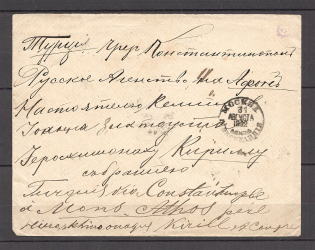 Турція чрез Константинополь
Русское Агенство на Афонѣ
Настоятелю Келліи
Іоанна Златоуста
Іеросхимонаху Кириллу
собратіею
Turquie via Constantinople
à Mont Athos père
Kirill
МОСКВА
31
АВГУСТА